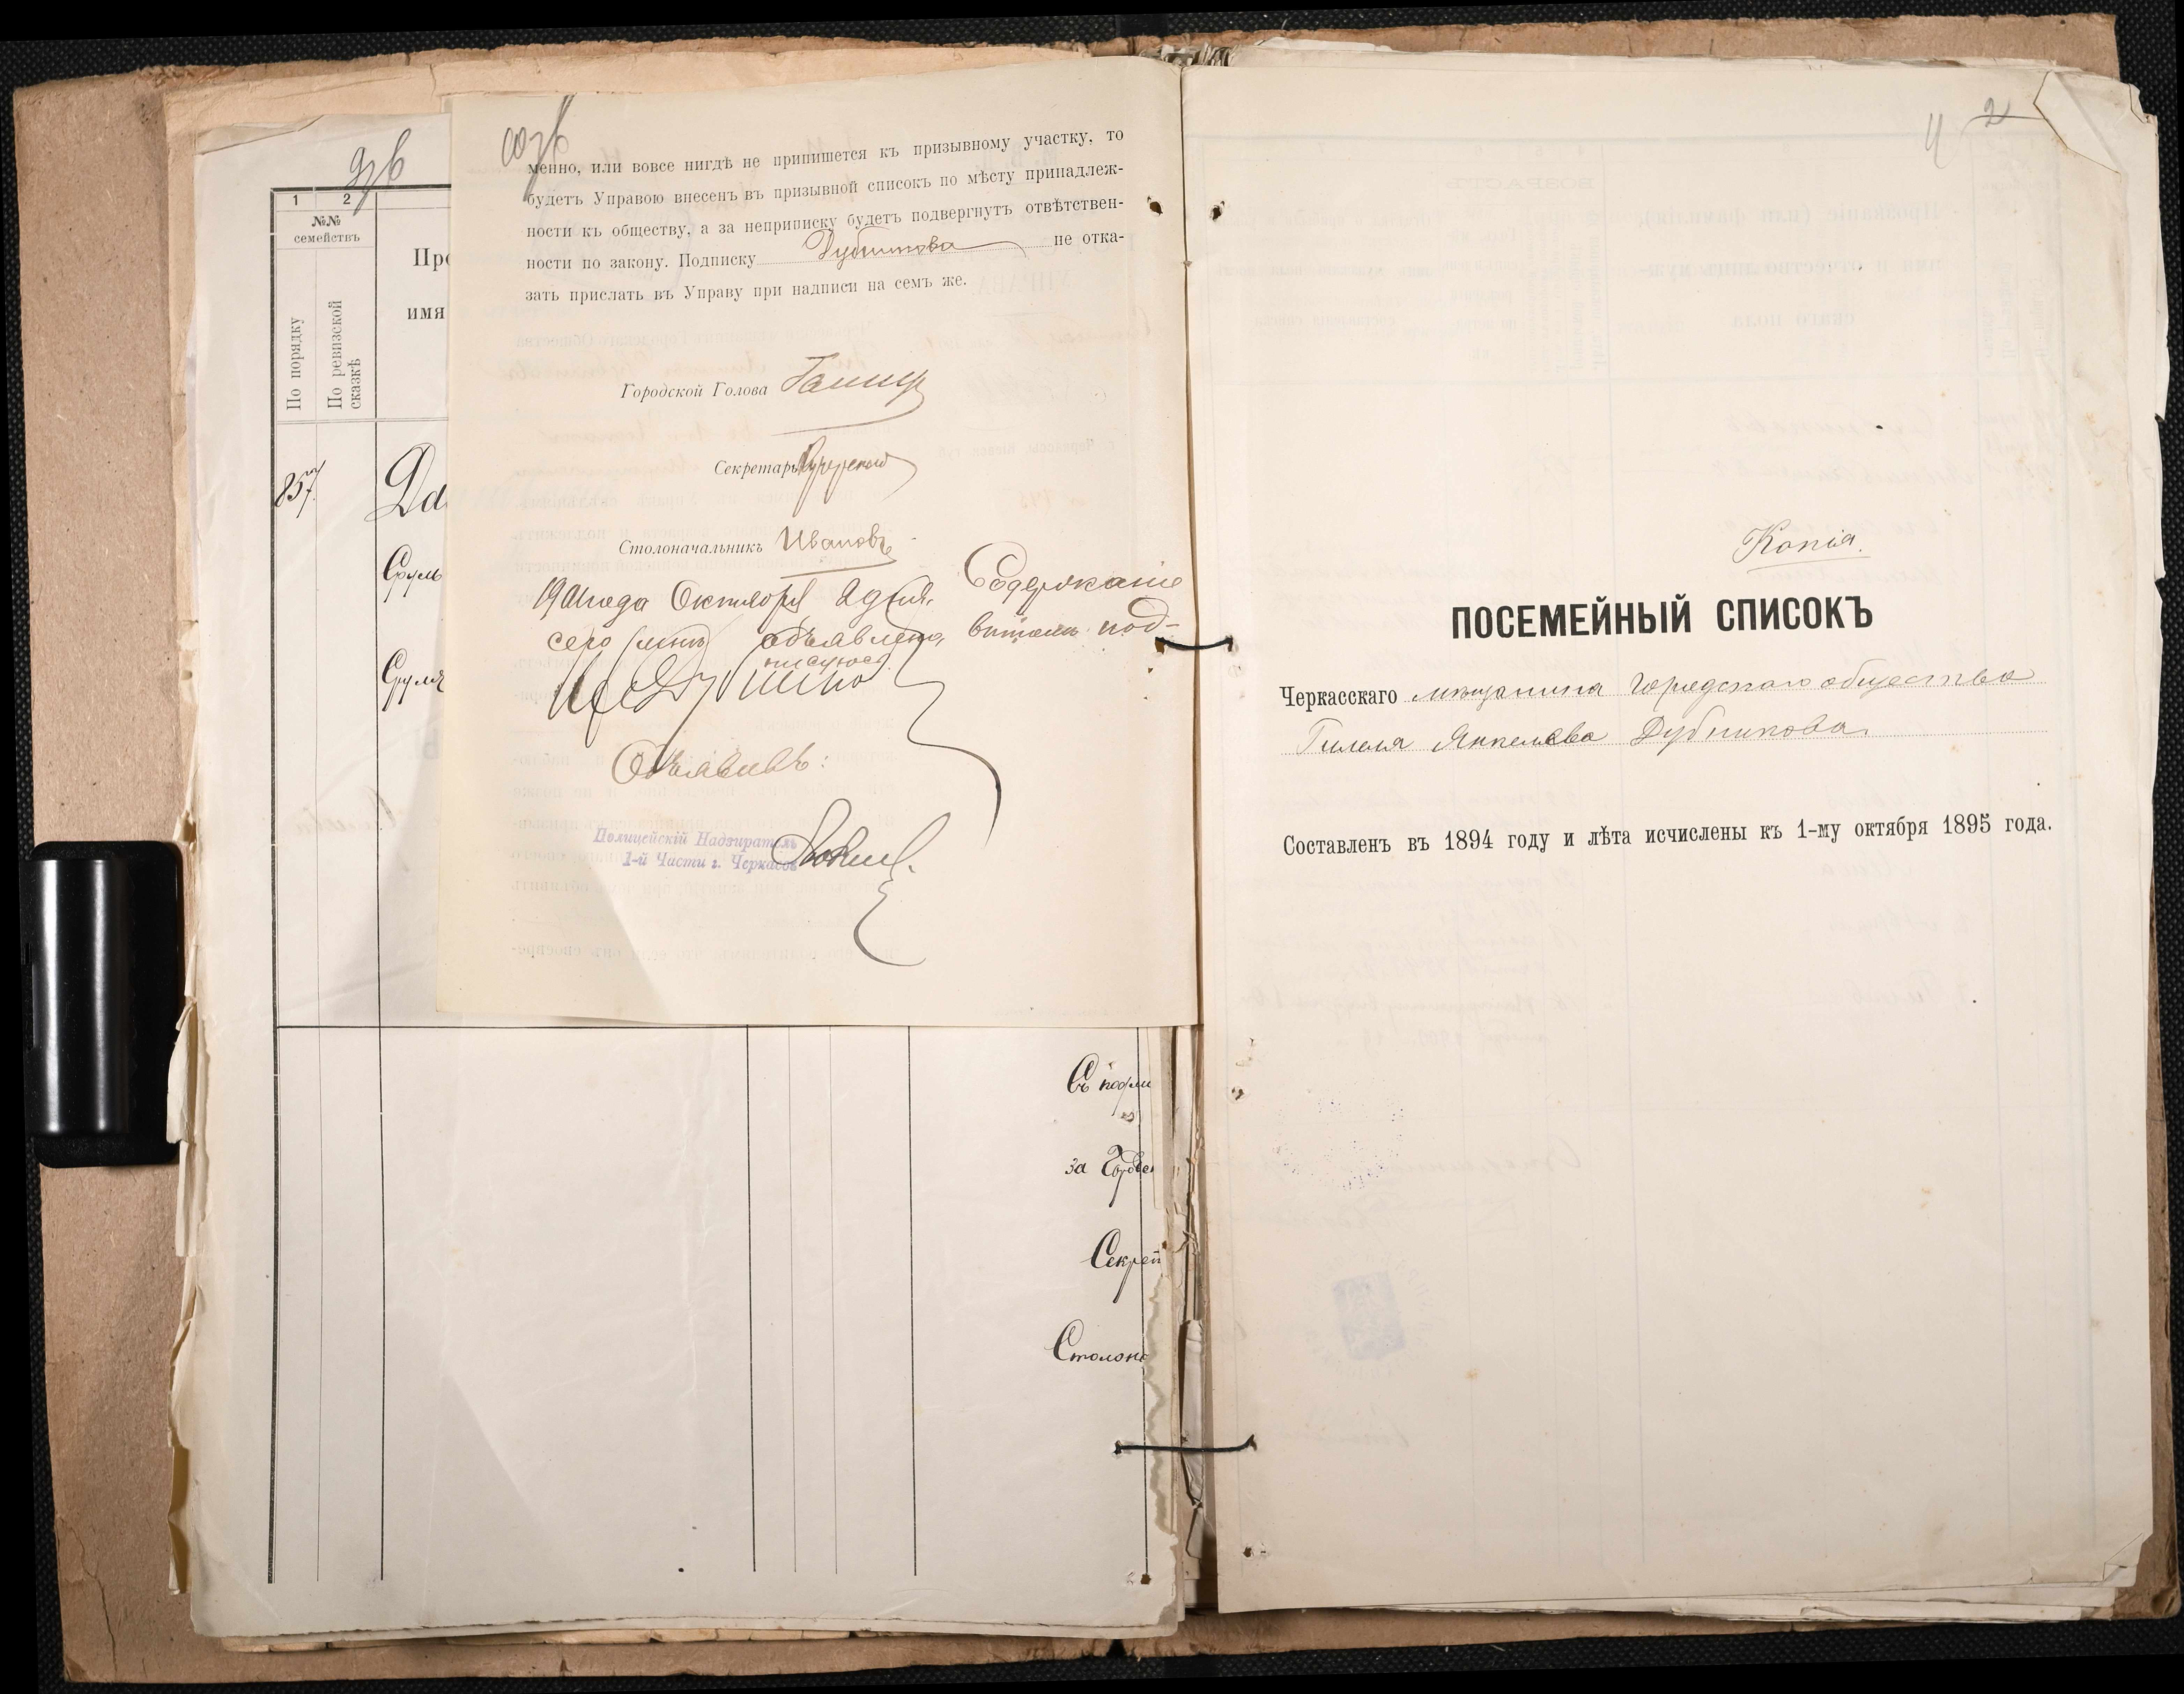 1 2
№№
семействъ
По порядку
По ревизской
сказкѣ
Про
имя
857.
Сруль
менно, или вовсе нигдѣ не припишется къ призывному участку, то
будетъ Управою внесенъ въ призывной списокъ по мѣсту принадлеж-
ности къ обществу, а за неприписку будетъ подвергнутъ отвѣтствен-
ности по закону. Подписку Дубникова не отка-
зать прислать въ Управу при надписи на семъ же.
Городской Голова
Секретарь
Столоначальникъ Ивановъ
1901 года Октября 2 дня. Содержаніе
сего объявлено, въ томъ под-
писуюсь
Объявилъ:
Полицейскій Надзиратель
1-й Части г. Черкасов
Съ подли
за Городс
Секрет
Столона
4 2
Копія.
ПОСЕМЕЙНЫЙ СПИСОКЪ
Черкасскаго мѣщанина городскаго общества
Гилеля Янкелева Дубникова.
Составленъ въ 1894 году и лѣта исчислены къ 1-му октября 1895 года.